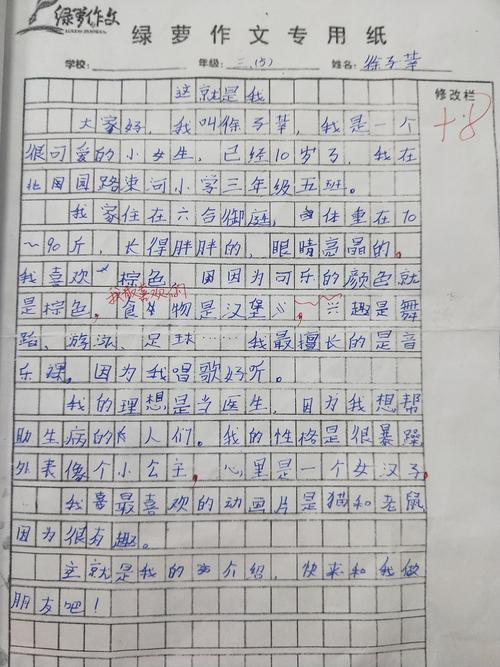 绿萝作文
绿萝作文专用纸
学校: 年级: 三.(5) 姓名: 徐子苹
修改栏
这就是我
+8
大家好，我叫徐子苹，我是一个
很可爱的小女生，已经10岁了，我在
北国园路束河小学三年级五班。
我家住在六合御庭，体重在70
～90斤，长得胖胖的，眼睛亮晶的。
我喜欢 棕色，因为可乐的颜色就
我最喜欢的
是棕色，食物是汉堡 趣是舞
蹈、游泳、足球……我最擅长的是音
乐课。因为我唱歌好听。
我的理想是当医生，因为我想帮
助生病的人们。我的性格是很暴躁
外表像个小公主，心里是一个女汉子。
我最喜欢的动画片是猫和老鼠
因为很有趣。
这就是我的 介绍，快来和我做
朋友吧！